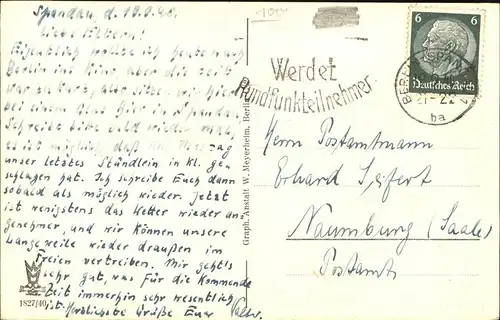 Spandau, d. 19.9.40.
Liebe Eltern!
Eigentlich wollte ich heute nach
Berlin ins Kino, aber die Zeit
war zu kurz, aber sitzen wir hier
bei einem Glas Bier in Spandau.
Schreibt bitte bald wieder mal,
es ist möglich, daß am
unser letztes Stündlein in Kl. ge-
schlagen hat. Ich schreibe Euch dann
sobald als möglich wieder. Jetzt
ist wenigstens das Wetter wieder an-
genehmer, und wir können unsere
Langeweile wieder draußen im
Freien vertreiben. Mir geht's
sehr gut, was für die kommende
Zeit immerhin sehr wesentlich
ist. Herzlichste Grüße Euer
1827/40
Graph. Anstalt W. Meyerheim, Berlin
Werdet
Rundfunkteilnehmer
6 6
Deutsches Reich
BERLIN-SPAN
21-22
ba
Herrn Postamtmann
Erhard Seifert
Naumburg (Saale)
Postamt